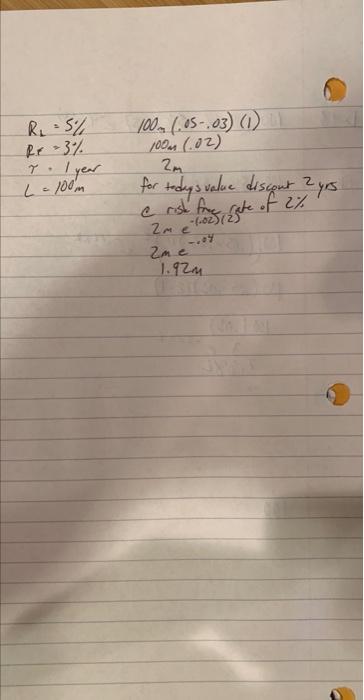 R_L = 5%
R_F = 3%
τ = 1 year
L = 100m
100m (.05-.03) (1)
100m (.02)
2m
for today's value discount 2 yrs
@ risk free rate of 2%
2m e^-(.02)(2)
2m e^-.04
1.92m